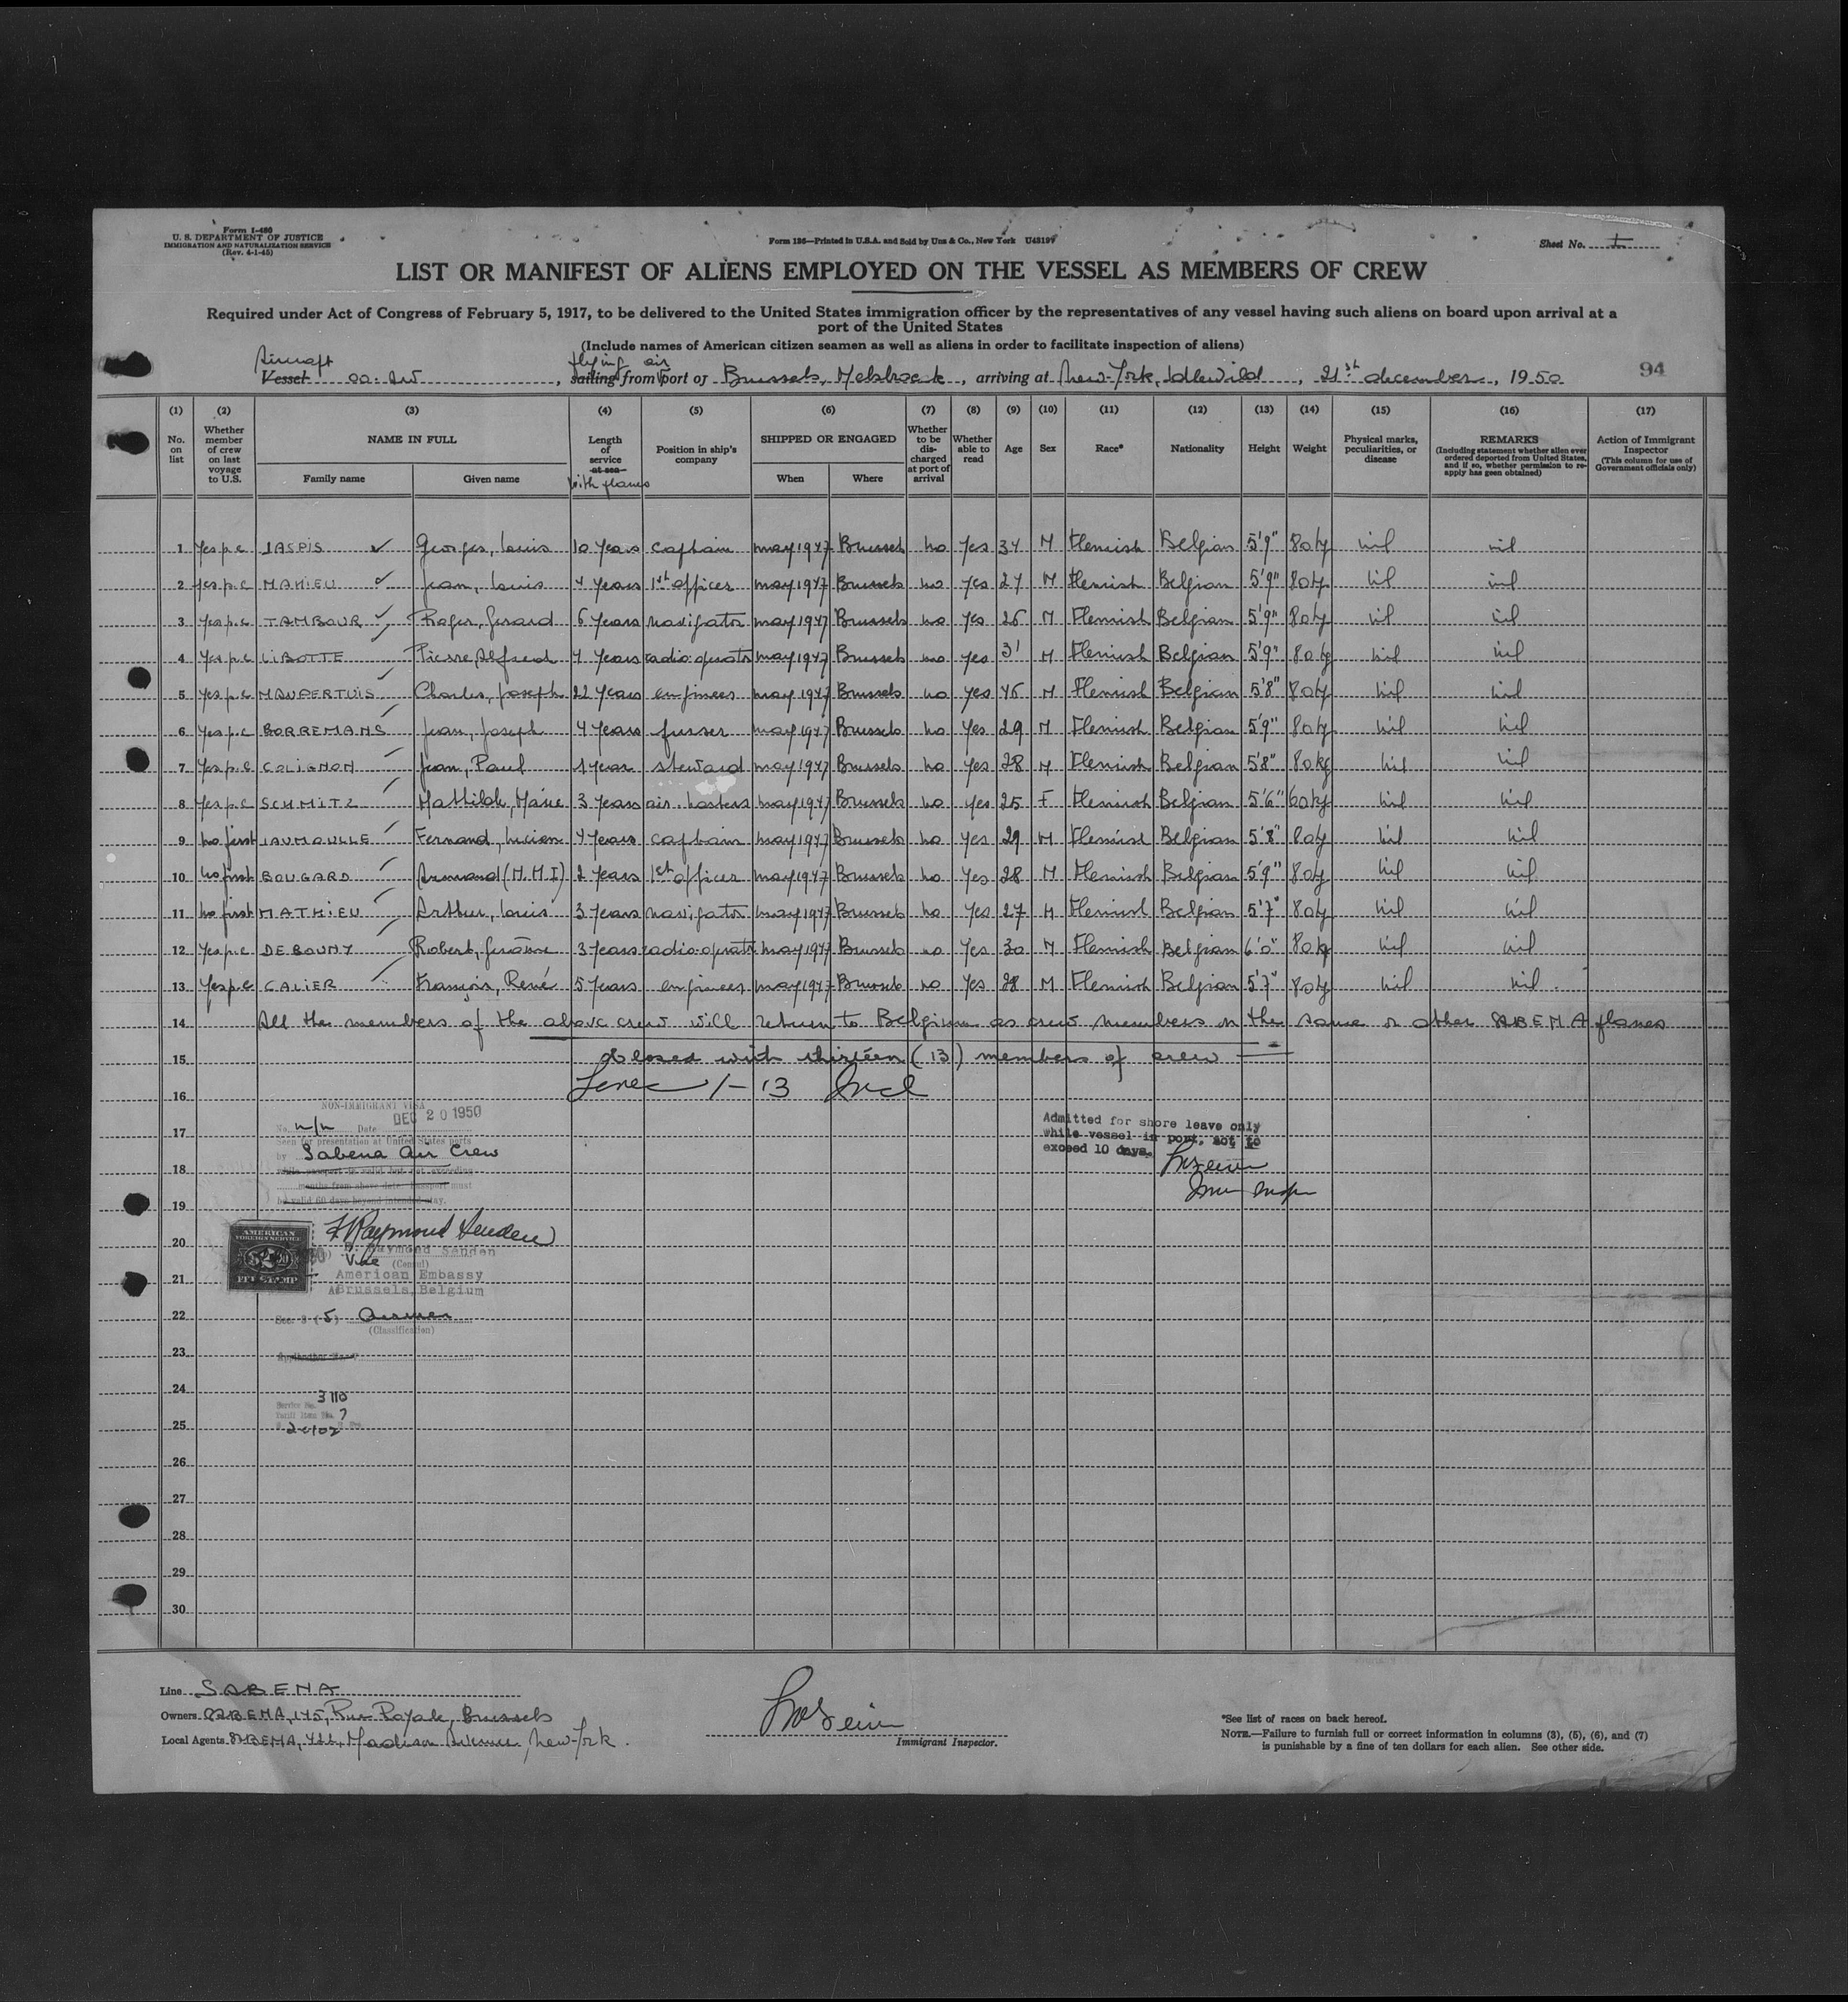 Form I-480
U. S. DEPARTMENT OF JUSTICE
IMMIGRATION AND NATURALIZATION SERVICE
(Rev. 4-1-45)
Form 136—Printed in U.S.A. and Sold by Unz & Co., New York U43197
Sheet No. 1
LIST OR MANIFEST OF ALIENS EMPLOYED ON THE VESSEL AS MEMBERS OF CREW
Required under Act of Congress of February 5, 1917, to be delivered to the United States immigration officer by the representatives of any vessel having such aliens on board upon arrival at a
port of the United States
(Include names of American citizen seamen as well as aliens in order to facilitate inspection of aliens)
Aircraft flying air
Vessel, sailing from port of Brussels, Melsbroek, arriving at New-York, Idlewild, 21st december, 1950 94
(1) (2) (3) (4) (5) (6) (7) (8) (9) (10) (11) (12) (13) (14) (15) (16) (17)
No. on list
Whether member of crew on last voyage to U.S.
NAME IN FULL
Family name
Given name
Length of service at sea
with planes
Position in ship's company
SHIPPED OR ENGAGED
When
Where
Whether to be discharged at port of arrival
Whether able to read
Age
Sex
Race*
Nationality
Height
Weight
Physical marks, peculiarities, or disease
REMARKS
(Including statement whether alien ever ordered deported from United States, and if so, whether permission to re-apply has been obtained)
Action of Immigrant Inspector
(This column for use of Government officials only)
1 Yes p.c JASPIS Georges, Louis 10 Years captain may 1947 Brussels no Yes 34 M Flemish Belgian 5'9" 80 kg nil nil
2 Yes p.c MAHIEU Jean, Louis 4 Years 1st officer may 1947 Brussels no Yes 27 M Flemish Belgian 5'9" 80 kg nil nil
3 Yes p.c TAMBOUR Roger, Gerard 6 Years navigator may 1947 Brussels no Yes 26 M Flemish Belgian 5'9" 80 kg nil nil
4 Yes p.c LIBOTTE Pierre, Alfred 4 Years radio-operator may 1947 Brussels no Yes 31 M Flemish Belgian 5'9" 80 kg nil nil
5 Yes p.c MAUPERTUIS Charles, Joseph 22 Years engineer may 1947 Brussels no Yes 46 M Flemish Belgian 5'8" 80 kg nil nil
6 Yes p.c BORREMANS Jean, Joseph 4 Years purser may 1947 Brussels no Yes 29 M Flemish Belgian 5'9" 80 kg nil nil
7 Yes p.c COLIGNON Jean, Paul 1 Year steward may 1947 Brussels no Yes 28 M Flemish Belgian 5'8" 80 kg nil nil
8 Yes p.c SCHMITZ Mathilde, Marie 3 Years air-hostess may 1947 Brussels no Yes 25 F Flemish Belgian 5'6" 60 kg nil nil
9 no first JAUMOULLE Fernand, Lucien 4 Years captain may 1947 Brussels no Yes 29 M Flemish Belgian 5'8" 80 kg nil nil
10 no first BOUGARD Armand (M.M.I) 2 Years 1st officer may 1947 Brussels no Yes 28 M Flemish Belgian 5'9" 80 kg nil nil
11 no first MATHIEU Arthur, Louis 3 Years navigator may 1947 Brussels no Yes 27 M Flemish Belgian 5'7" 80 kg nil nil
12 Yes p.c DEBOUNY Robert, Jérôme 3 Years radio-operator may 1947 Brussels no Yes 30 M Flemish Belgian 6'0" 80 kg nil nil
13 Yes p.c CALIER François, René 5 Years engineer may 1947 Brussels no Yes 28 M Flemish Belgian 5'7" 80 kg nil nil
14 All the members of the above crew will return to Belgium as crew members on the same or other SABENA planes
15 closed with thirteen (13) members of crew
16 1-13 Incl
NON-IMMIGRANT VISA
No. n/n Date DEC 20 1950
17
Seen for presentation at United States ports
by Sabena Air Crew
18
while passport is valid but not exceeding
months from above date. Passport must
be valid 60 days beyond intended stay.
Admitted for shore leave only
while vessel in port, not to
exceed 10 days.
19
AMERICAN
FOREIGN SERVICE
$2.00
FEE STAMP
F Raymond Senden
20
F. Raymond Senden
Vice (Consul)
American Embassy
21
At Brussels, Belgium
22
Sec. 3 (5) Airmen
(Classification)
23
24
Service No. 3110
Tariff Item No. 7
25
26
27
28
29
30
Line SABENA
Owners SABENA, 145, Rue Royale, Brussels
Local Agents SABENA, 422, Madison Avenue, New-York.
Immigrant Inspector.
*See list of races on back hereof.
NOTE.—Failure to furnish full or correct information in columns (3), (5), (6), and (7)
is punishable by a fine of ten dollars for each alien. See other side.